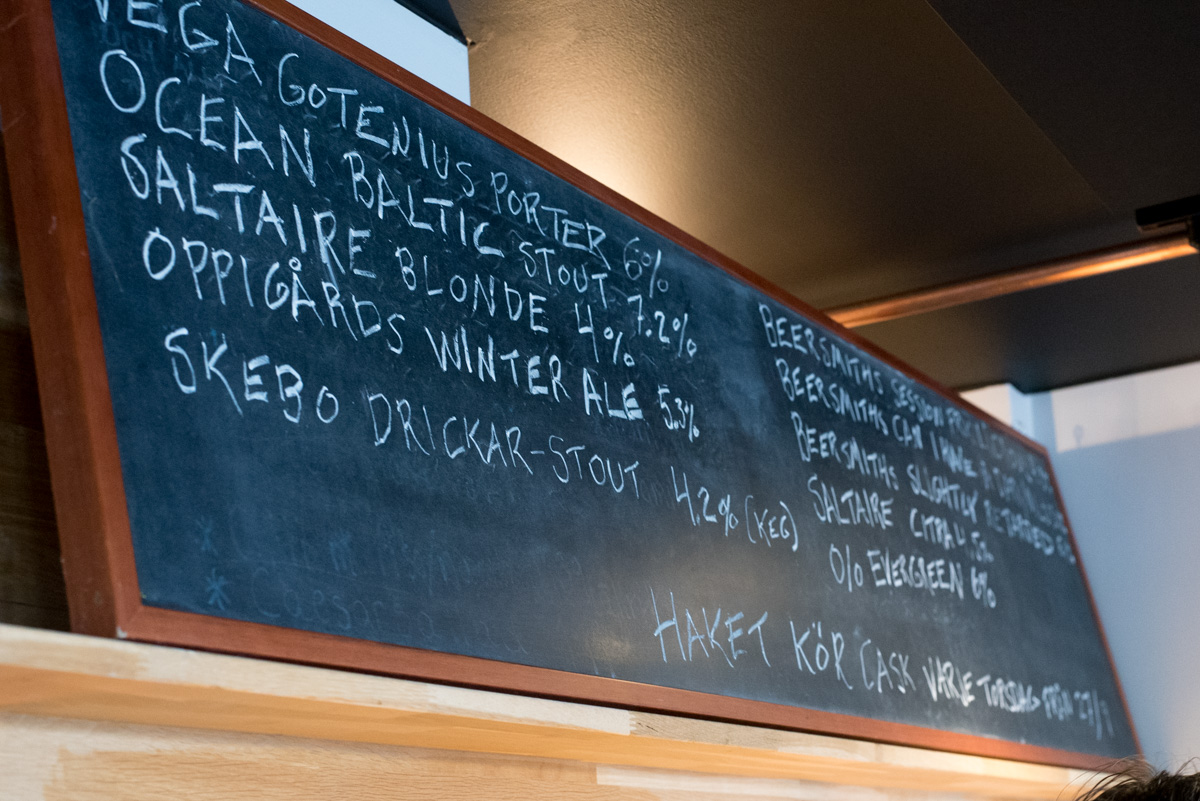 VEGA GOTENIUS PORTER 6%
OCEAN BALTIC STOUT 7.2%
SALTAIRE BLONDE 4%
OPPIGÅRDS WINTER ALE 5.3%
SKEBO DRICKAR-STOUT 4.2% (KEG)
BEERSMITHS SESSION
BEERSMITHS CAN I HAVE
BEERSMITHS SLIGHTLY RETARDED
SALTAIRE CITRA 4.5%
0% EVERGREEN 6%
HAKET KÖR CASK VARJE TORSDAG FRÅN 27/1